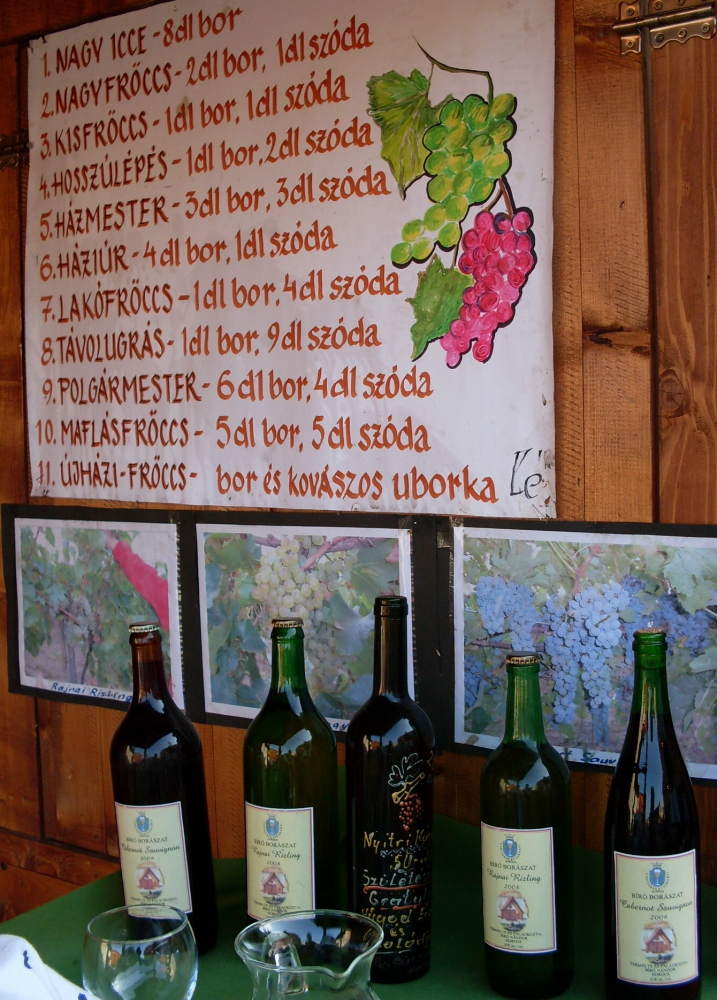 1. NAGY ICCE - 8dl bor
2. NAGYFRÖCCS - 2dl bor, 1dl szóda
3. KISFRÖCCS - 1dl bor, 1dl szóda
4. HOSSZÚLÉPÉS - 1dl bor, 2dl szóda
5. HÁZMESTER - 3dl bor, 3dl szóda
6. HÁZIÚR - 4dl bor, 1dl szóda
7. LAKÓFRÖCCS - 1dl bor, 4dl szóda
8. TÁVOLUGRÁS - 1dl bor, 9dl szóda
9. POLGÁRMESTER - 6dl bor, 4dl szóda
10. MAFLÁSFRÖCCS - 5dl bor, 5dl szóda
11. ÚJHÁZI-FRÖCCS - bor és kovászos uborka
Ké
Rajnai Rizling
Sauv
BÍRÓ BORÁSZAT
Cabernet Sauvignon
2008
BÍRÓ BORÁSZAT
Rajnai Rizling
2008
Nyitra
50.
Születés
BÍRÓ BORÁSZAT
Rajnai Rizling
2008
TERMELTE ÉS PALACKOZTA:
BÍRÓ NÁNDOR
BÍRÓ BORÁSZAT
Cabernet Sauvignon
2009
TERMELTE ÉS PALACKOZTA:
BÍRÓ NÁNDOR